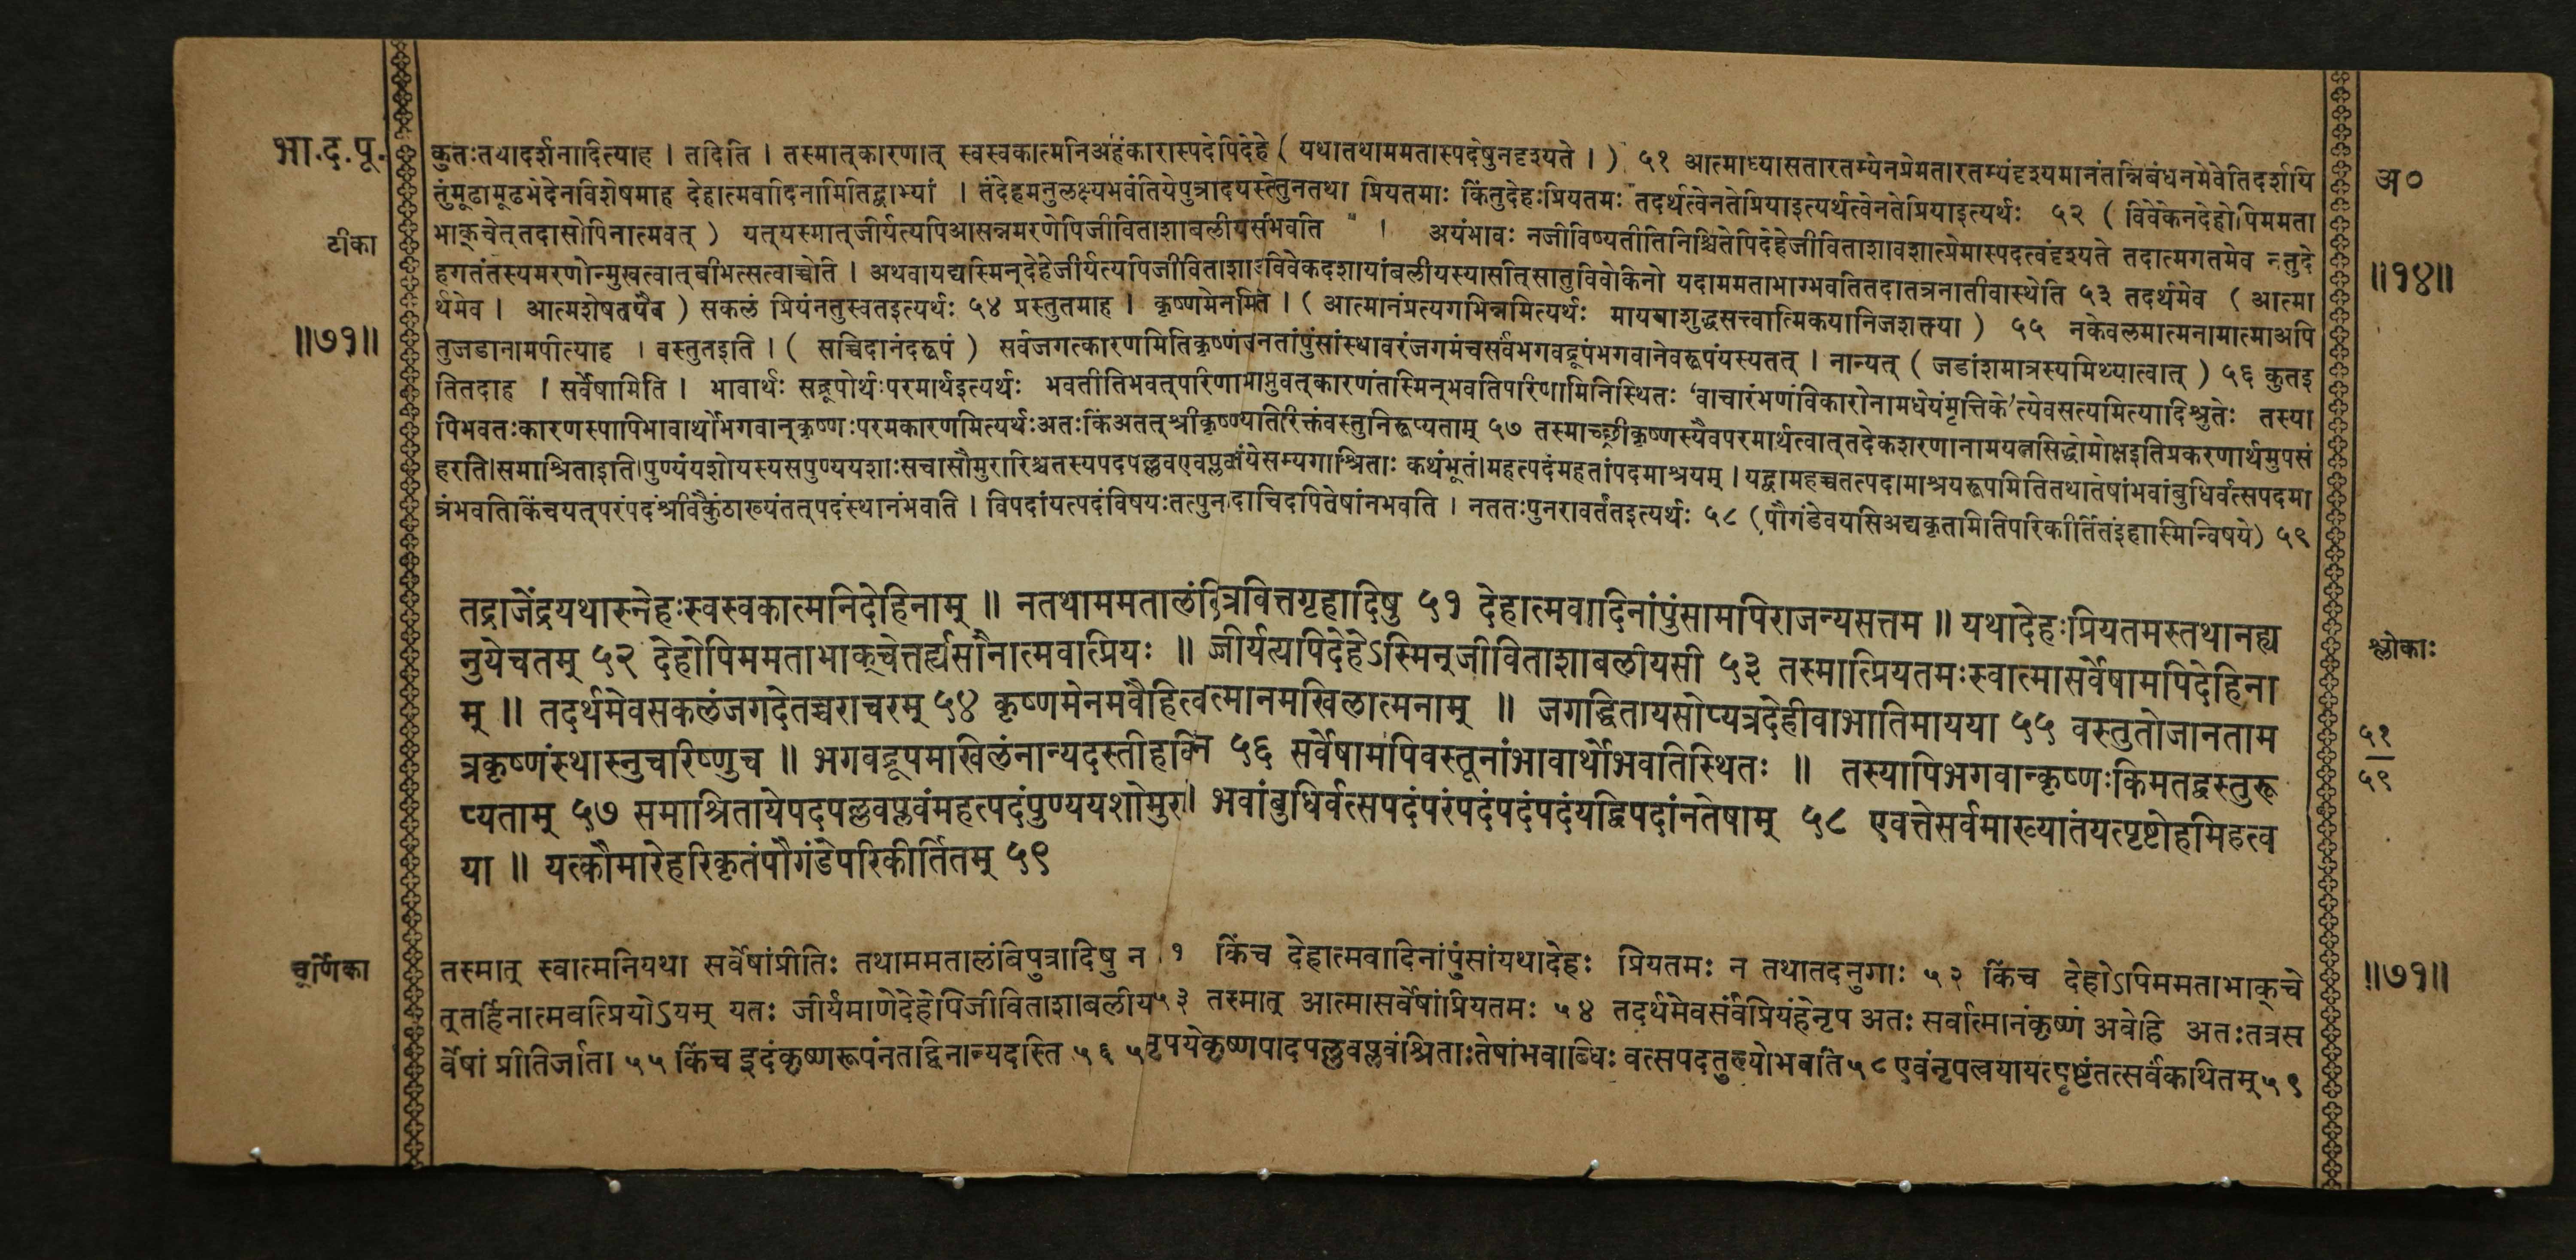 भा.द.पू.
टीका
॥७१॥
कुतःतथादर्शनादित्याह । तदिति । तस्मात्कारणात् स्वस्वकात्मनिअहंकारास्पदेपिदेहे ( यथातथाममतास्पदेषुनदृश्यते । ) ५१ आत्माध्यासतारतम्येनप्रेमतारतम्यंदृश्यमानंतन्निबंधनमेवेतिदर्शयि
तुंमूढामूढभेदेनविशेषमाह देहात्मवादिनामितिद्वाभ्यां । तंदेहमनुलक्ष्यभवंतियेपुत्रादयस्तेतुनतथा प्रियतमाः किंतुदेहःप्रियतमः तदर्थत्वेनतेप्रियाइत्यर्थत्वेनतेप्रियाइत्यर्थः ५२ ( विवेकेनदेहोपिममता
भाक्चेत्तदासोपिनात्मवत् ) यत्यस्मात्जीर्यत्यपिआसन्नमरणेपिजीविताशाबलीयसीभवति । अयंभावः नजीविष्यतीतिनिश्चितेपिदेहेजीविताशावशात्प्रेमास्पदत्वंदृश्यते तदात्मगतमेव नतुदे
हगतंतस्यमरणोन्मुखत्वात्बीभत्सत्वाच्चेति । अथवायद्यस्मिन्देहेजीर्यत्यपिजीविताशाःविवेकदशायांबलीयस्यासीत्सातुविवेकिनो यदाममताभाग्भवतितदातत्रनातीवास्थेति ५३ तदर्थमेव ( आत्मा
र्थमेव । आत्मशेषतयैव ) सकलं प्रियंनतुस्वतइत्यर्थः ५४ प्रस्तुतमाह । कृष्णमेनमिति । ( आत्मानंप्रत्यगभिन्नमित्यर्थः मायया शुद्धसत्त्वात्मिकयानिजशक्त्या ) ५५ नकेवलमात्मनामात्माअपि
तुजडानामपीत्याह । वस्तुतइति । ( सच्चिदानंदरूपं ) सर्वजगत्कारणमितिकृष्णंजानतांपुंसांस्थावरंजगमंचसर्वंभगवद्रूपंभगवानेवरूपंयस्यतत् । नान्यत् ( जडांशमात्रस्यमिथ्यात्वात् ) ५६ कुतइ
तितदाह । सर्वेषामिति । भावार्थः सद्रूपोर्थःपरमार्थइत्यर्थः भवतीतिभवत्परिणामाप्नुवत्कारणंतस्मिन्भवतिपरिणामिनिस्थितः ‘वाचारंभणंविकारोनामधेयंमृत्तिके’त्येवसत्यमित्यादिश्रुतेः तस्या
पिभवतःकारणस्यापिभावार्थोभगवान्कृष्णःपरमकारणमित्यर्थःअतःकिंअतत्श्रीकृष्णव्यतिरिक्तंवस्तुनिरूप्यताम् ५७ तस्माच्छ्रीकृष्णस्यैवपरमार्थत्वात्तदेकशरणानामयत्नसिद्धोमोक्षइतिप्रकरणार्थमुपसं
हरति।समाश्रिताइति।पुण्यंयशोयस्यसपुण्ययशाःसचासौमुरारिश्चतस्यपदपल्लवएवप्लवतंयेसम्यगाश्रिताः कथंभूतं।महत्पदंमहतांपदमाश्रयम् । यद्वामहच्चतत्पदामाश्रयरूपमितितथातेषांभवांबुधिर्वत्सपदमा
त्रंभवति।किंचयत्परंपदंश्रीवैकुंठाख्यंतत्पदंस्थानंभवति । विपदांयत्पदंविषयःतत्पुनदाचिदपितेषांनभवति । नततःपुनरावर्तंतइत्यर्थः ५८ (पौगंडेवयसिअद्यकृतामितिपरिकीर्तितंइहास्मिन्विषये) ५९
तद्राजेंद्रयथास्नेहःस्वस्वकात्मनिदेहिनाम् ॥ नतथाममतालंबिपुत्रवित्तगृहादिषु ५१ देहात्मवादिनांपुंसामपिराजन्यसत्तम ॥ यथादेहःप्रियतमस्तथानह्य
नुयेचतम् ५२ देहोपिममताभाक्चेत्तर्ह्यसौनात्मवत्प्रियः ॥ जीर्यत्यपिदेहेऽस्मिन्जीविताशाबलीयसी ५३ तस्मात्प्रियतमःस्वात्मासर्वेषामपिदेहिना
म् ॥ तदर्थमेवसकलंजगदेतच्चराचरम् ५४ कृष्णमेनमवैहित्वत्मानमखिलात्मनाम् ॥ जगद्धितायसोप्यत्रदेहीवाभातिमायया ५५ वस्तुतोजानताम
त्रकृष्णंस्थास्नुचरिष्णुच ॥ भगवद्रूपमखिलंनान्यदस्तीहकिंन ५६ सर्वेषामपिवस्तूनांभावार्थोभवतिस्थितः ॥ तस्यापिभगवान्कृष्णःकिमतद्वस्तुरू
प्यताम् ५७ समाश्रितायेपदपल्लवप्लवंमहत्पदंपुण्ययशोमुरा। भवांबुधिर्वत्सपदंपरंपदंपदंपदंयद्विपदांनतेषाम् ५८ एवत्तेसर्वमाख्यातंयत्पृष्टोहमिहत्व
या ॥ यत्कौमारेहरिकृतंपौगंडेपरिकीर्तितम् ५९
चूर्णिका
तस्मात् स्वात्मनियथा सर्वेषांप्रीतिः तथाममतालंबिपुत्रादिषु न १ किंच देहात्मवादिनांपुंसांयथादेहः प्रियतमः न तथातदनुगाः ५२ किंच देहोऽपिममताभाक्चे
त्तर्हिनात्मवत्प्रियोऽयम् यतः जीर्यमाणेदेहेपिजीविताशाबलीय५३ तस्मात् आत्मासर्वेषांप्रियतमः ५४ तदर्थमेवसर्वंप्रियंहेनृप अतः सर्वात्मानंकृष्णं अवेहि अतःतत्रस
र्वेषां प्रीतिर्जाता ५५ किंच इदंकृष्णरूपंनतद्विनान्यदस्ति ५६ ५नृपयेकृष्णपादपल्लवप्लवंश्रिताःतेषांभवाब्धिः वत्सपदतुल्योभवति५८एवंनृपत्वयायत्पृष्टंतत्सर्वंकथितम्५९
अ०
॥१४॥
श्लोकाः
५१
५९
॥७१॥